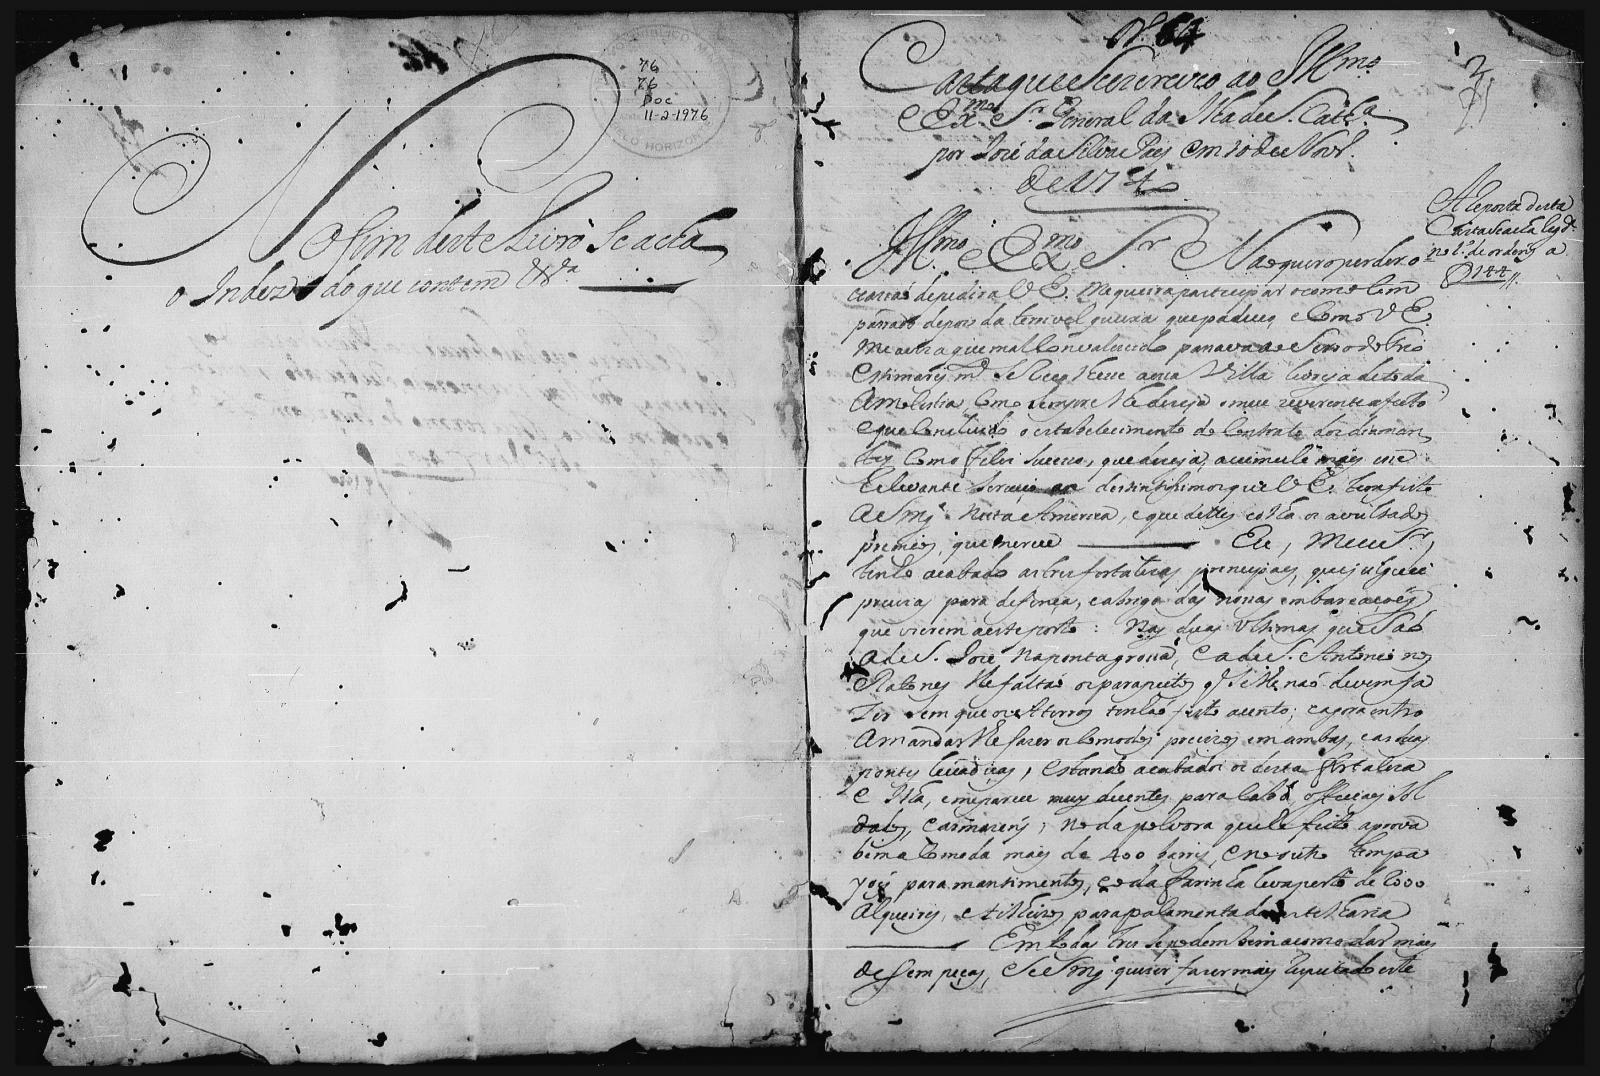 76
76
Doc
11-2-1976
HORIZO
No fim deste Livro Se acha
o Index do que contem &&ª
Nº 64
Carta que escreveo ao Illmo
e Exmo Sr. General da Ilha de S. Cathª
por José da Silva Paes em 10 de Novr.
de 174
A reposta desta
Carta se acha
no Lº de ordens a
144
Illmo e Exmo Sr. Nao quero perder o
de pedir a V.E. Me queira participar o como tem
passado depois da terrivel queixa que padeceo e como V.E.
me avisa que mal convalecido passava ao Serro do Frio
estimarey mto se recolhece a essa Villa livre ja de toda
a molestia, como sempre lhe deseja o meu reverente afecto
e que concluisse o estabelecimento do Contrato dos diaman
tes como feliz sucesso, que deseja, acumule mais esse
relevante Serviço aos destintissimos que V.E. tem feito
a S. Mge Nesta America, e que delles colha os avultados
premios, que merece Eu, Meu Sr,
tenho acabado as tres fortalezas principaes, que julguei
precizas para defença, e abrigo das nossas embarcações
que vierem a este porto: Nas duas Ultimas que São
a de S. José na ponta grossa, e a de S. Antonio nos
Ratones lhe faltão os parapeitos q se lhe não devem fa
zer sem que os Aterros tenhão feito acento; e agora entro
a mandar lhe fazer os comodos precizos em ambas, e as suas
pontes levadiças, estando acabados os desta Fortaleza
e Ilha, e me parece muy decentes para Cabo, officiaes Sol
dados, e armazens, no da polvora que lhe fiz a prova
bem acomoda mais de 400 barris, e no outro tempa
para mantimentos, e o da farinha leva perto de 2000
Alqueires, e para palamenta da artelharia
Em todas tres se podem bem acomodar mais
de sem peças, Se S. Mge quizer fazer mais reputado este